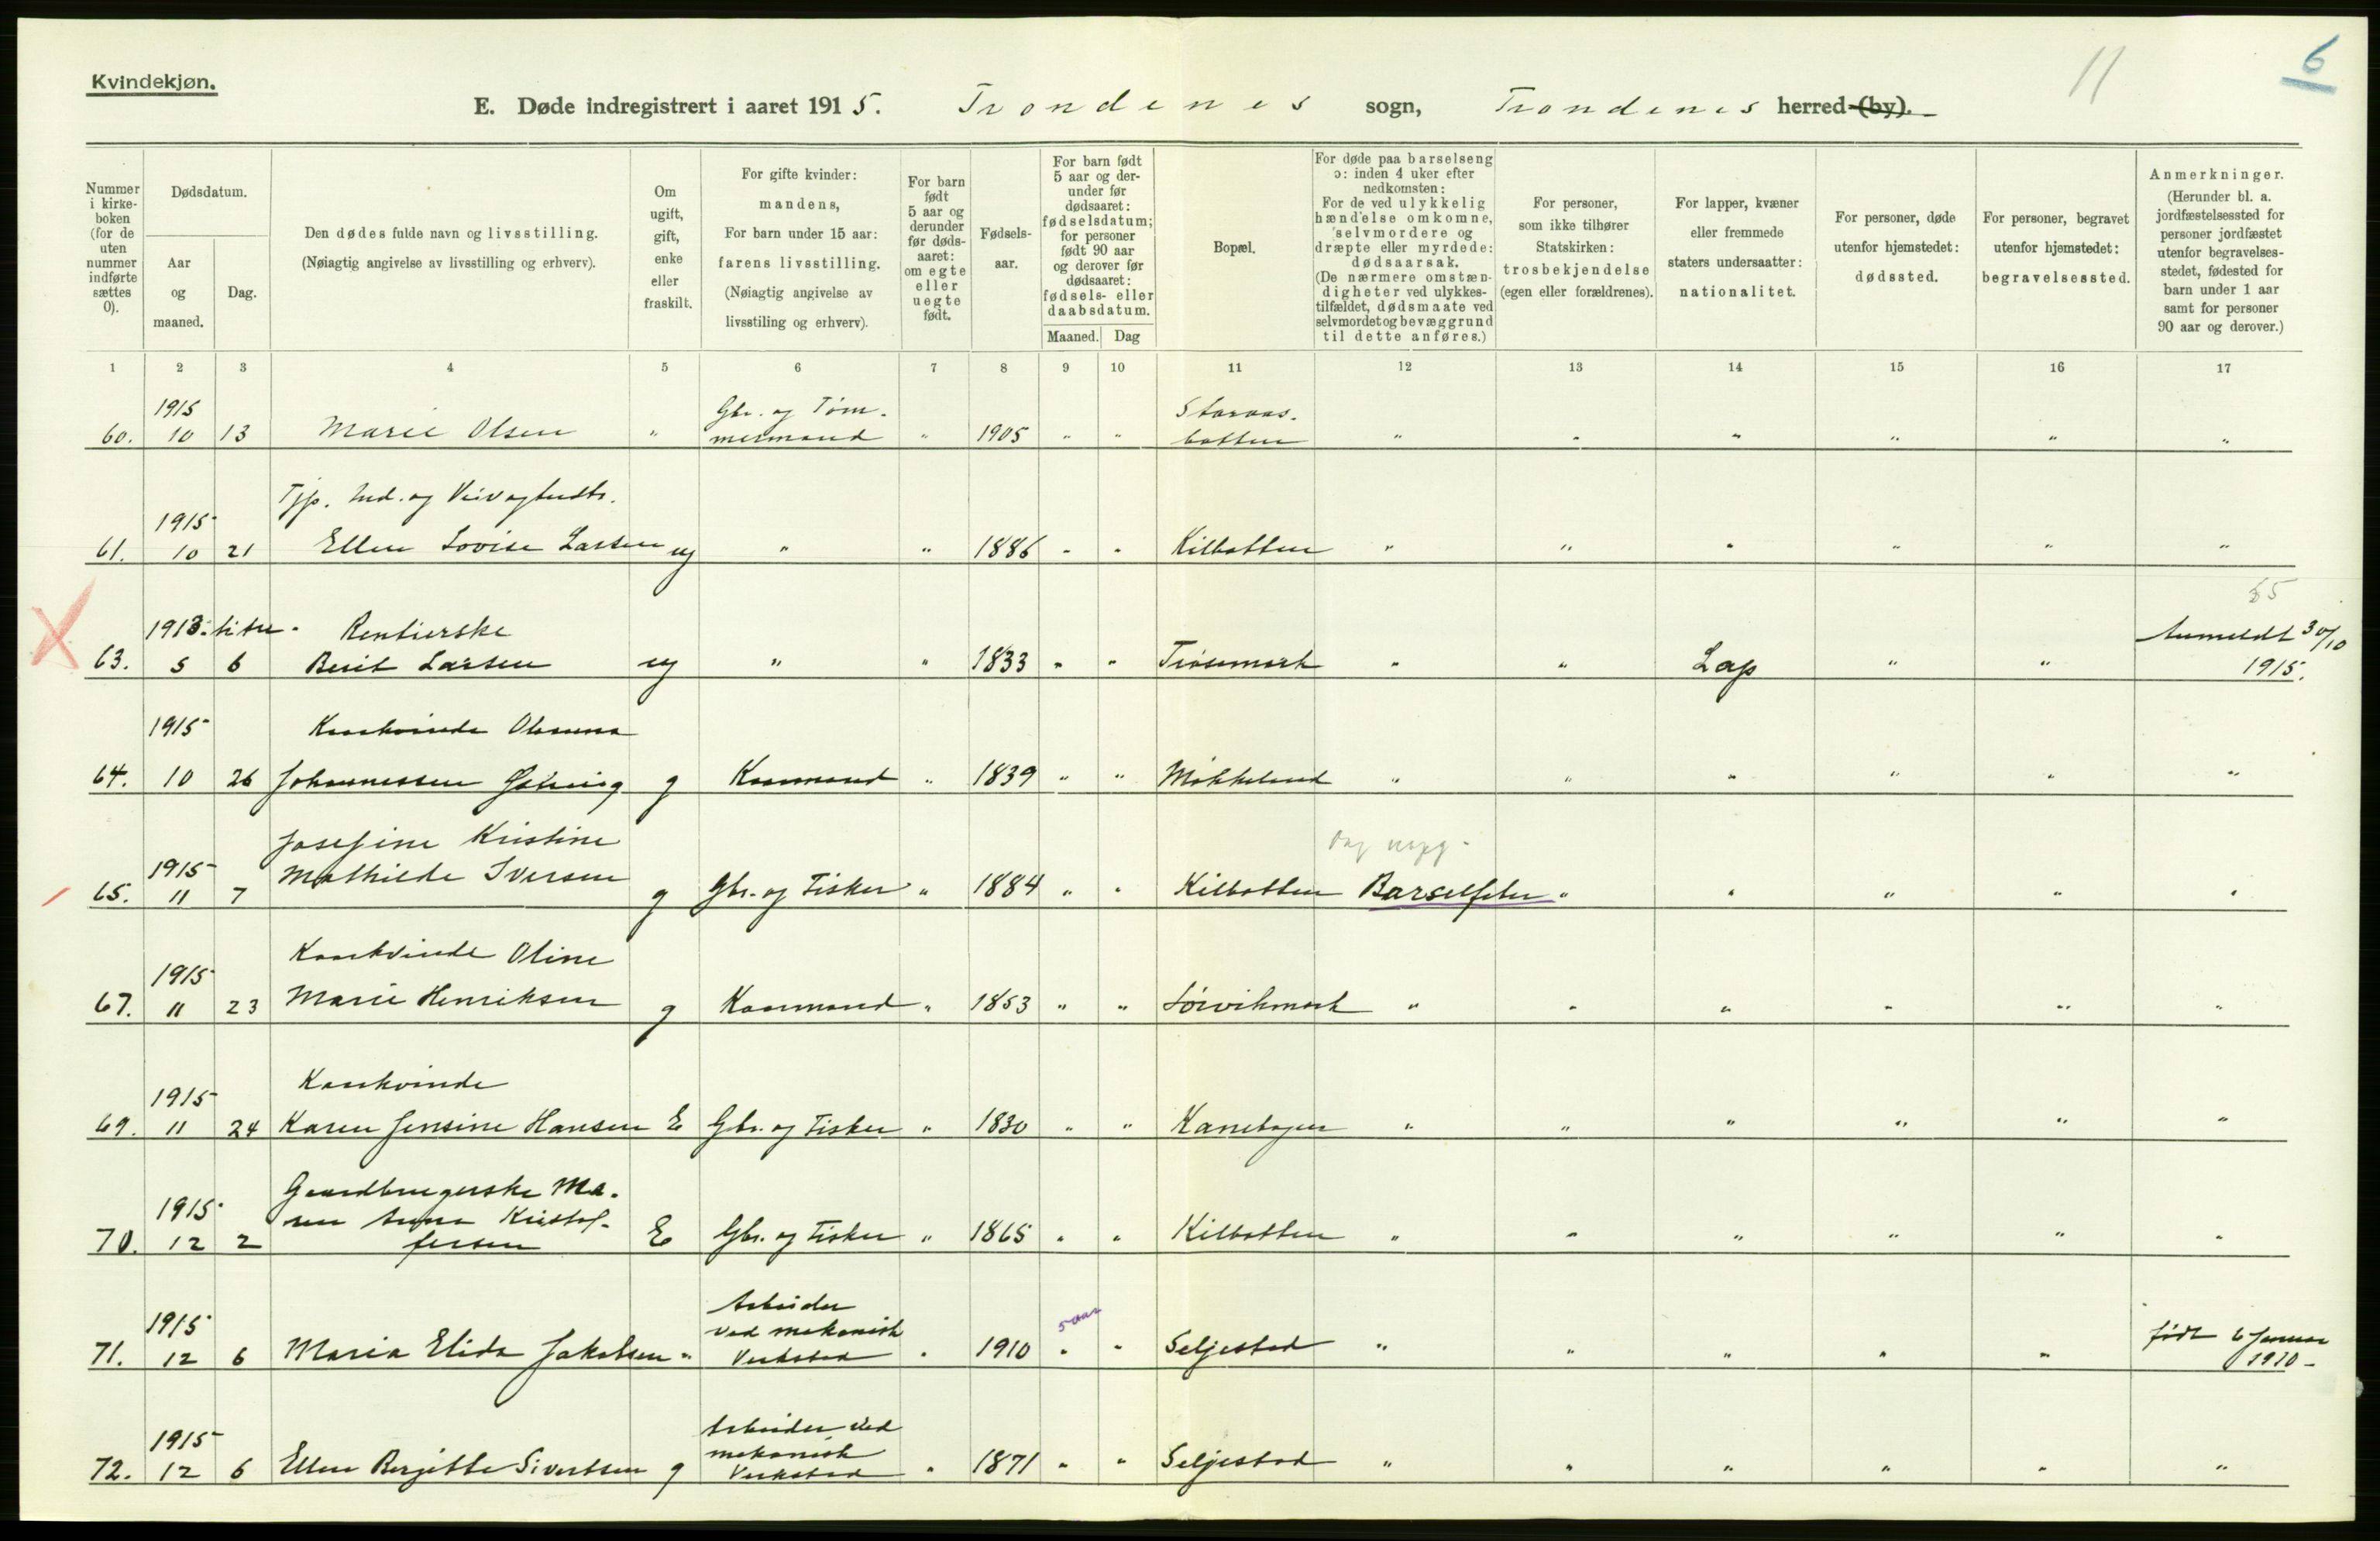 Kvindekjøn.
11
6
E. Døde indregistrert i aaret 1915. Trondenes sogn, Trondenes herred (by).
Nummer i kirke-boken (for de uten nummer indførte sættes 0).
Dødsdatum.
Aar og maaned.
Dag.
Den dødes fulde navn og livsstilling.
(Nøiagtig angivelse av livsstilling og erhverv).
Om ugift, gift, enke eller fraskilt.
For gifte kvinder: mandens,
For barn under 15 aar: farens livsstilling.
(Nøiagtig angivelse av livsstiling og erhverv).
For barn født 5 aar og derunder før døds-aaret: om egte eller uegte født.
Fødsels-aar.
For barn født 5 aar og der-under før dødsaaret: fødselsdatum; for personer født 90 aar og derover før dødsaaret: fødsels- eller daabsdatum.
Maaned. Dag
Bopæl.
For døde paa barselseng ɔ: inden 4 uker efter nedkomsten:
For de ved ulykkelig hændelse omkomne, selvmordere og dræpte eller myrdede: dødsaarsak.
(De nærmere omstæn-digheter ved ulykkes-tilfældet, dødsmaate ved selvmordet og bevæggrund til dette anføres.)
For personer, som ikke tilhører Statskirken: trosbekjendelse (egen eller forældrenes).
For lapper, kvæner eller fremmede staters undersaatter: nationalitet.
For personer, døde utenfor hjemstedet: dødssted.
For personer, begravet utenfor hjemstedet: begravelsessted.
Anmerkninger.
(Herunder bl. a. jordfæstelsessted for personer jordfæstet utenfor begravelses-stedet, fødested for barn under 1 aar samt for personer 90 aar og derover.)
1 2 3 4 5 6 7 8 9 10 11 12 13 14 15 16 17
1915 Gbr. og Tøm-
60. 10 13 Marie Olsen " mermand " 1905 " " botten " " " " " "
1915
61. 10 21 Ellen Lovise Larsen ug " " 1886 " " Kilbotten " " " " " "
1913. Rentierske Anmeldt 30/10
63. 5 6 Berit Larsen ug " " 1833 " " Trøsemark " " Lap " " 1915.
1915 Kaarkvinde
64. 10 26 Johannessen g Kaarmand " 1839 " " Møkkeland " " " " " "
Josefine Kristine
1915 Mathilde Iversen
65. 11 7 g Gbr. og Fisker " 1884 " " Kilbotten Barselfeber " " " " "
Kaarkvinde Oline
1915
67. 11 23 Marie Henriksen g Kaarmand " 1853 " " Sørvikmark " " " " " "
1915 Kaarkvinde
69. 11 24 Karen Jensine Hansen E Gbr. og Fisker " 1830 " " Kanebogen " " " " " "
Gaardbrugerske Ma-
1915 ren Anna Kristof-
70. 12 2 fersen E Gbr. og Fisker " 1865 " " Kilbotten " " " " " "
Arbeider
1915 ved mekanisk 5 aar født 6 Januar
71. 12 6 Maria Elida Jakobsen " Verksted " 1910 " " Seljestad " " " " " 1910 -
Arbeider ved
1915 mekanisk
72. 12 6 Ellen Bergitte Sivertsen g Verksted " 1871 " " Seljestad " " " " " "